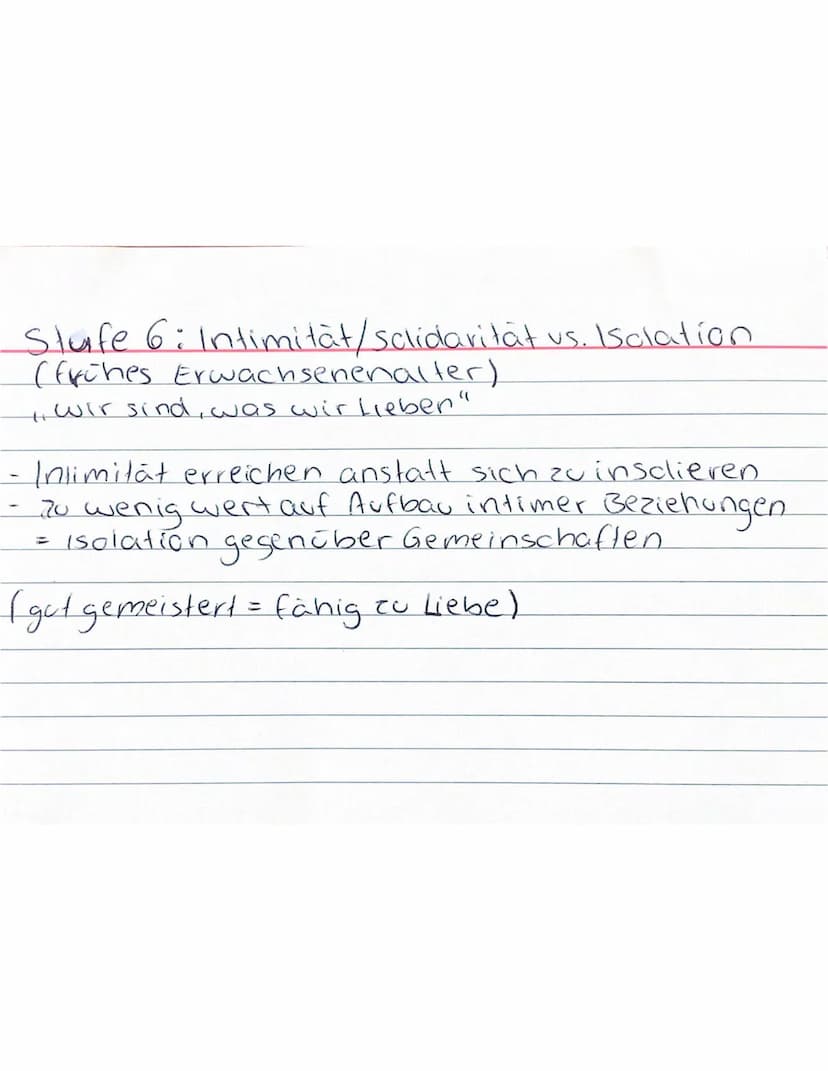 Stufe 6: Intimität/Solidarität vs. Isolation
(frühes Erwachsenenalter)
„Wir sind, was wir lieben“
- Intimität erreichen anstatt sich zu insolieren
- Zu wenig wert auf Aufbau intimer Beziehungen
= Isolation gegenüber Gemeinschaften
(gut gemeistert = fähig zu Liebe)